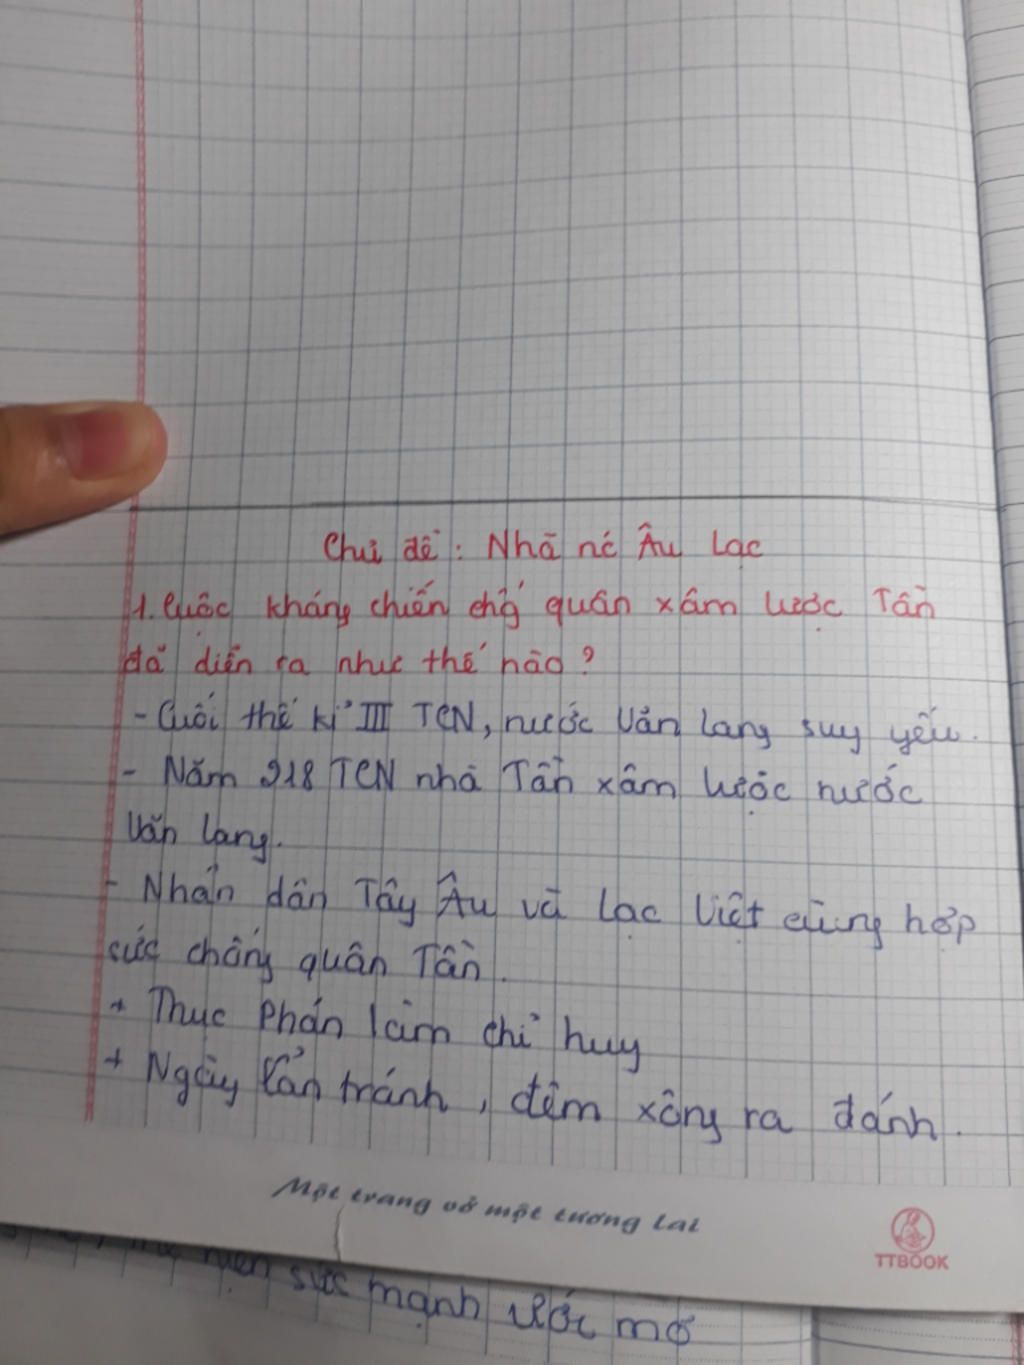 Chủ đề: Nhà nc Âu Lạc
1. Cuộc kháng chiến chống quân xâm lược Tần
đã diễn ra như thế nào?
- Cuối thế kỉ III TCN, nước Văn Lang suy yếu.
- Năm 218 TCN nhà Tần xâm lược nước
Văn Lang.
- Nhân dân Tây Âu và Lạc Việt cùng hợp
sức chống quân Tần.
+ Thục Phán làm chỉ huy
+ Ngày lẩn tránh, đêm xông ra đánh.
Một trang vở một tương lai
TTBOOK
sức mạnh ước mơ